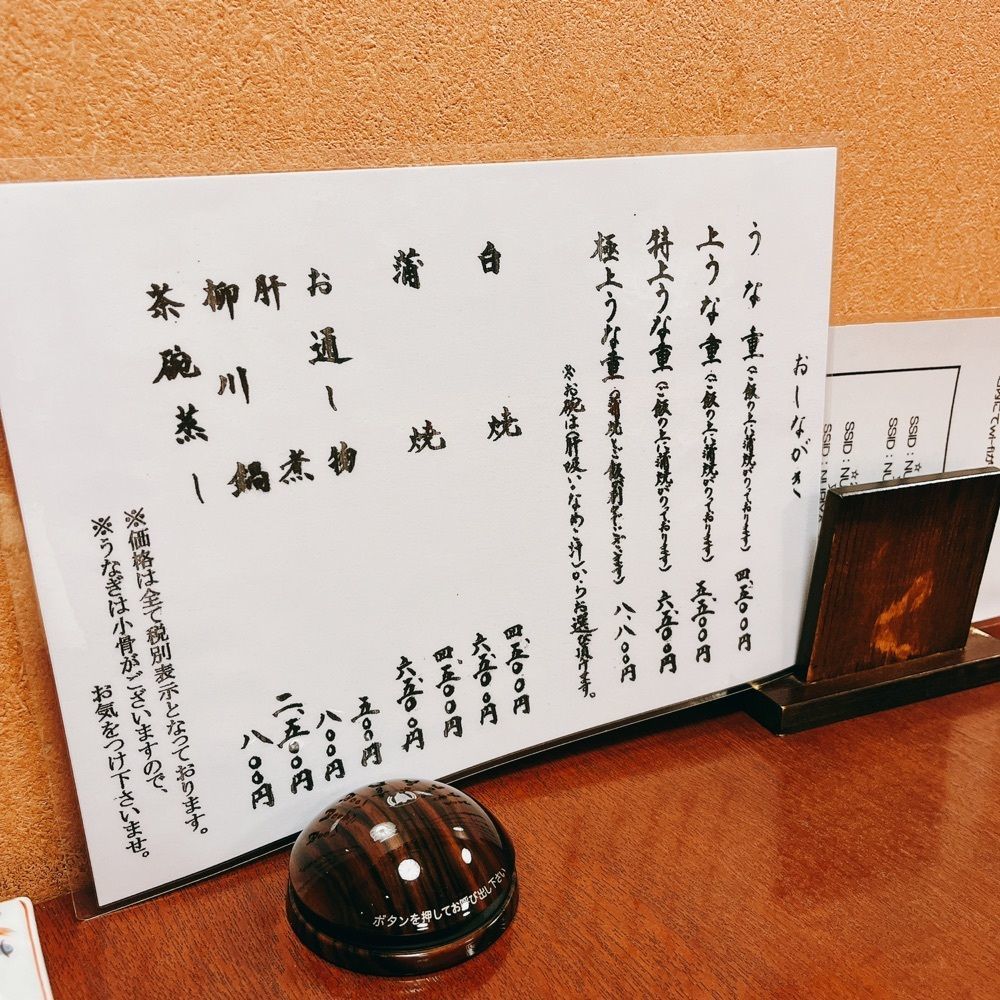 おしながき
うな重(ご飯の上に蒲焼がのっております) 四、五〇〇円
上うな重(ご飯の上に蒲焼がのっております) 五、五〇〇円
特上うな重(ご飯の上に蒲焼がのっております) 六、五〇〇円
極上うな重(蒲焼とご飯別々でございます) 八、八〇〇円
※お碗は(肝吸い・なめこ汁)からお選び頂けます。
白焼 四、五〇〇円
六、五〇〇円
蒲焼 四、五〇〇円
六、五〇〇円
お通し物 五〇〇円
肝煮 八〇〇円
柳川鍋 二、五〇〇円
茶碗蒸し 八〇〇円
※価格は全て税別表示となっております。
※うなぎは小骨がございますので、
お気をつけ下さいませ。
ボタンを押してお呼び出し下さい
SSID:
SSID:
SSID: